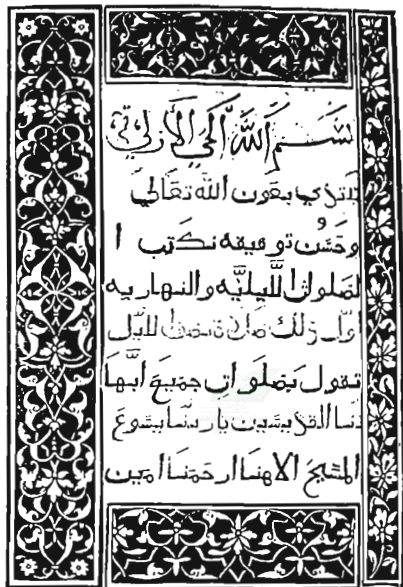 بسم الله الحي الازلي
نبتدي بعون الله تعالي
وحسن توفيقه نكتب ا
لصلوات الليليه والنهاريه
اول ذلك صلاة نصف لليل
تقول بصلوات جميع ابها
تنا القديسين يا ربنا يسوع
المسيح الاهنا ارحمنا امين